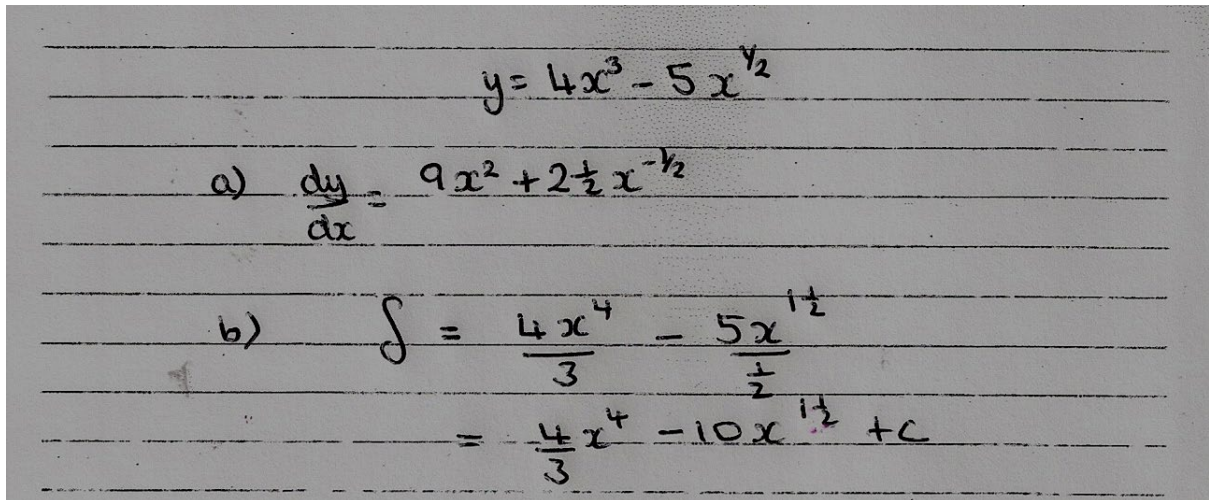 y = 4x³ - 5x^½
a) dy/dx = 9x² + 2½x^-½
b) ∫ = 4x⁴/3 - 5x^1½/½
= 4/3x⁴ - 10x^1½ + c